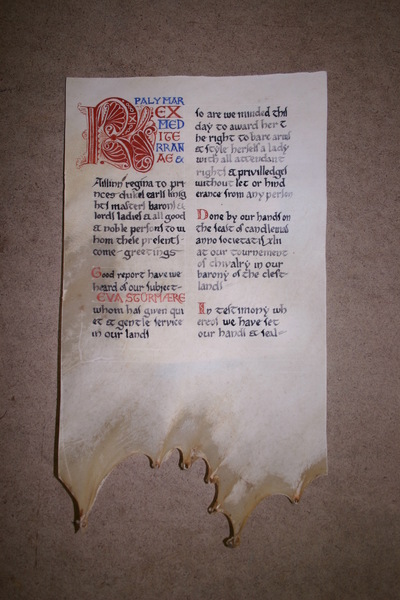 PALY MAR
REX
MED
ITE
RRAN
AE &
Aislinn regina to pri
nces dukes earls knig
hts masters barons &
lords ladies & all good
& noble persons to w
hom these presents
come greetings
Good report have we
heard of our subject
EVA STURMÆRE
whom has given qui
et & gentle service
in our lands
so are we minded this
day to award her t
he right to bare arms
& style herself a lady
with all attendant
rights & priviledges
without let or hind
erance from any person
Done by our hands on
the feast of candlemas
anno societatis xlii
at our tournement
of chivalry in our
barony of the cleft
lands
In testimony wh
ereof we have set
our hands & seal